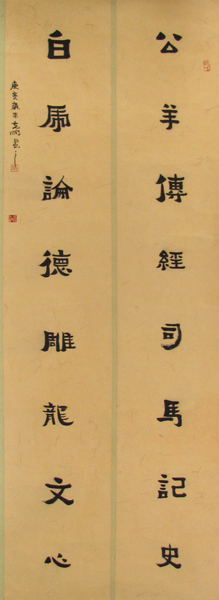 公羊傳經司馬記史
白虎論德雕龍文心